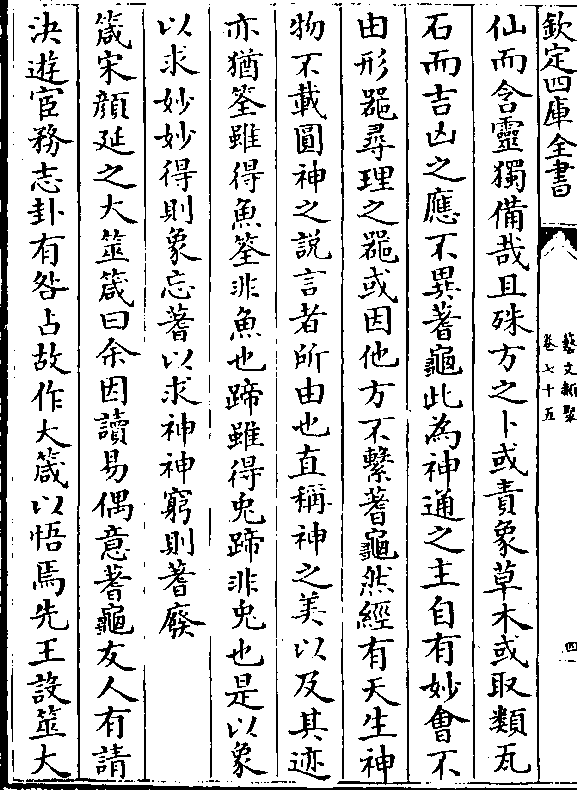 欽定四庫全書
藝文類聚
卷七十五
四
仙而含靈獨備哉且殊方之卜或責象草木或取類瓦
石而吉凶之應不異蓍龜此為神通之主自有妙會不
由形器尋理之器或因他方不繫蓍龜然經有天生神
物不載圓神之說言者所由也直稱神之美以及其迹
亦猶筌雖得魚筌非魚也蹄雖得兔蹄非兔也是以象
以求妙妙得則象忘蓍以求神神窮則蓍廢
箴宋顔延之大筮箴曰余因讀易偶意蓍龜友人有請
決遊宦務志卦有咎占故作大箴以悟焉先王設筮大